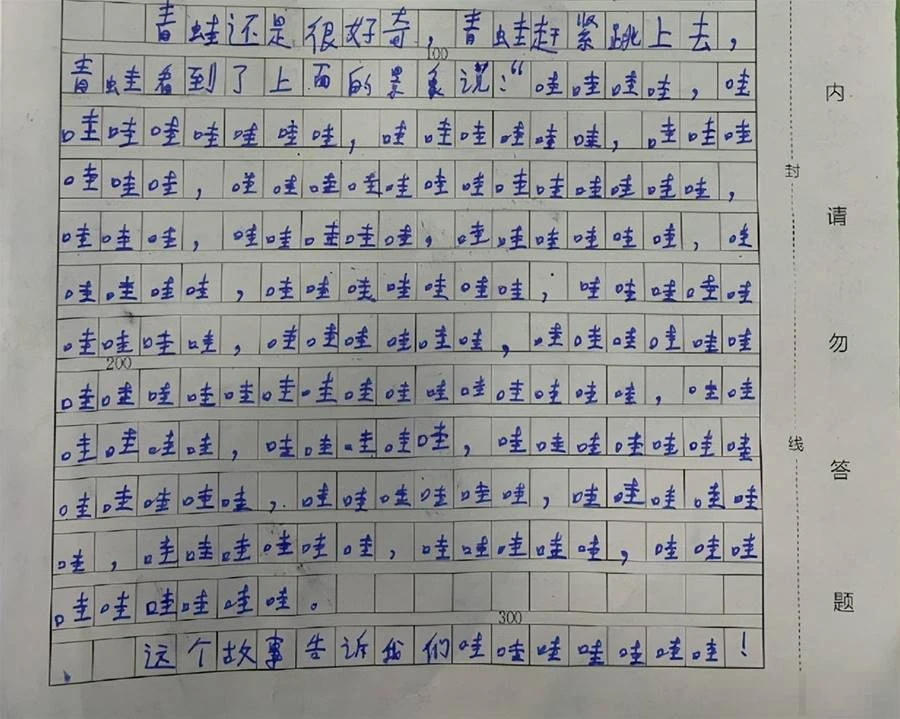 青蛙还是很好奇，青蛙赶紧跳上去，
100
青蛙看到了上面的景象说：“哇哇哇哇，哇
哇哇哇哇哇哇哇，哇哇哇哇哇哇，哇哇哇
哇哇哇，哇哇哇哇哇哇哇哇哇哇哇哇哇，
哇哇哇，哇哇哇哇哇，哇哇哇哇哇哇，哇
哇哇哇哇，哇哇哇哇哇哇哇，哇哇哇哇哇
哇哇哇哇，哇哇哇哇哇哇，哇哇哇哇哇哇
200
哇哇哇哇哇哇哇哇哇哇哇哇哇哇哇，哇哇
哇哇哇哇，哇哇哇哇哇，哇哇哇哇哇哇哇
哇哇哇哇哇，哇哇哇哇哇哇，哇哇哇哇哇
哇，哇哇哇哇哇哇，哇哇哇哇哇，哇哇哇
哇哇哇哇哇哇。
300
这个故事告诉我们哇哇哇哇哇哇哇！
封线
内请勿答题